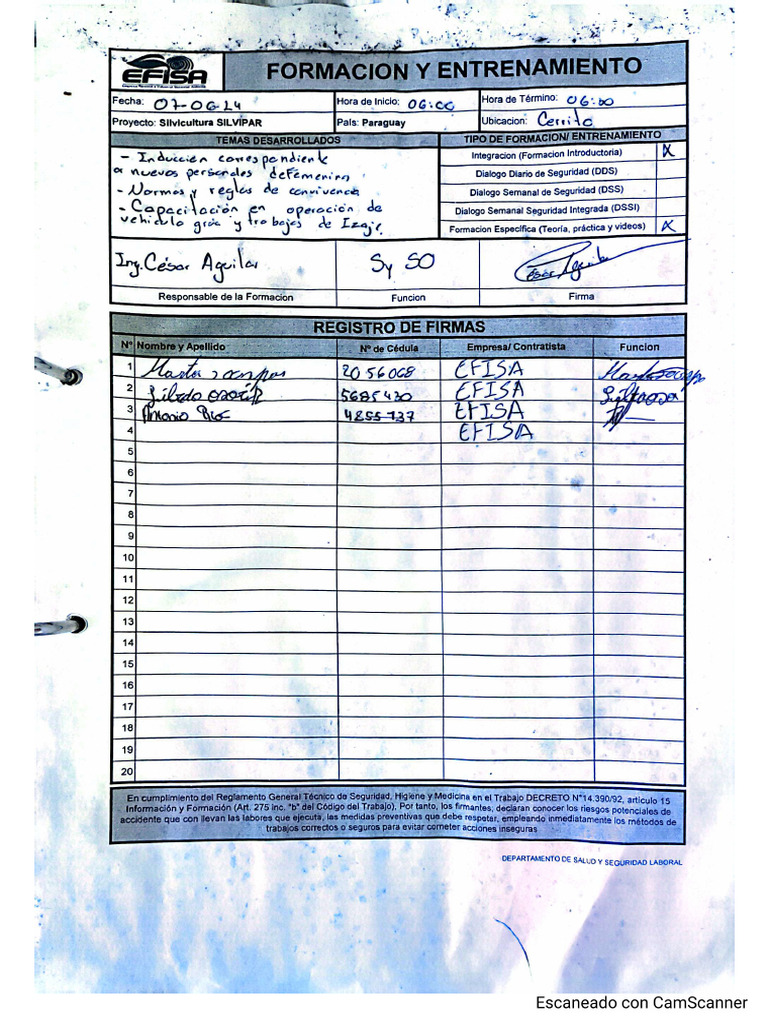 EFISA
FORMACION Y ENTRENAMIENTO
Fecha: 07-06-24
Hora de Inicio: 06:00
Hora de Término: 06:30
Proyecto: Silvicultura SILVIPAR
País: Paraguay
Ubicacion: Cerrito
TEMAS DESARROLLADOS
TIPO DE FORMACION/ ENTRENAMIENTO
- Inducción correspondiente
a nuevos personales
- Normas y reglas de convivencia
- Capacitación en operación de
vehiculo grúa y trabajos de Izaje.
Integracion (Formacion Introductoria) X
Dialogo Diario de Seguridad (DDS)
Dialogo Semanal de Seguridad (DSS)
Dialogo Semanal Seguridad Integrada (DSSI)
Formacion Especifica (Teoría, práctica y videos) X
Ing. César Aguilar
Sy SO
César Aguilar
Responsable de la Formacion
Funcion
Firma
REGISTRO DE FIRMAS
Nº Nombre y Apellido Nº de Cédula Empresa/ Contratista Funcion
1 2056068 EFISA
2 5685430 EFISA
3 Antonio 4855737 EFISA
4 EFISA
5
6
7
8
9
10
11
12
13
14
15
16
17
18
19
20
En cumplimiento del Reglamento General Técnico de Seguridad, Higiene y Medicina en el Trabajo DECRETO N°14.390/92, articulo 15
Información y Formación (Art. 275 inc. "b" del Código del Trabajo), Por tanto, los firmantes, declaran conocer los riesgos potenciales de
accidente que con llevan las labores que ejecuta, las medidas preventivas que debe respetar, empleando inmediatamente los métodos de
trabajos correctos o seguros para evitar cometer acciones inseguras
DEPARTAMENTO DE SALUD Y SEGURIDAD LABORAL
Escaneado con CamScanner